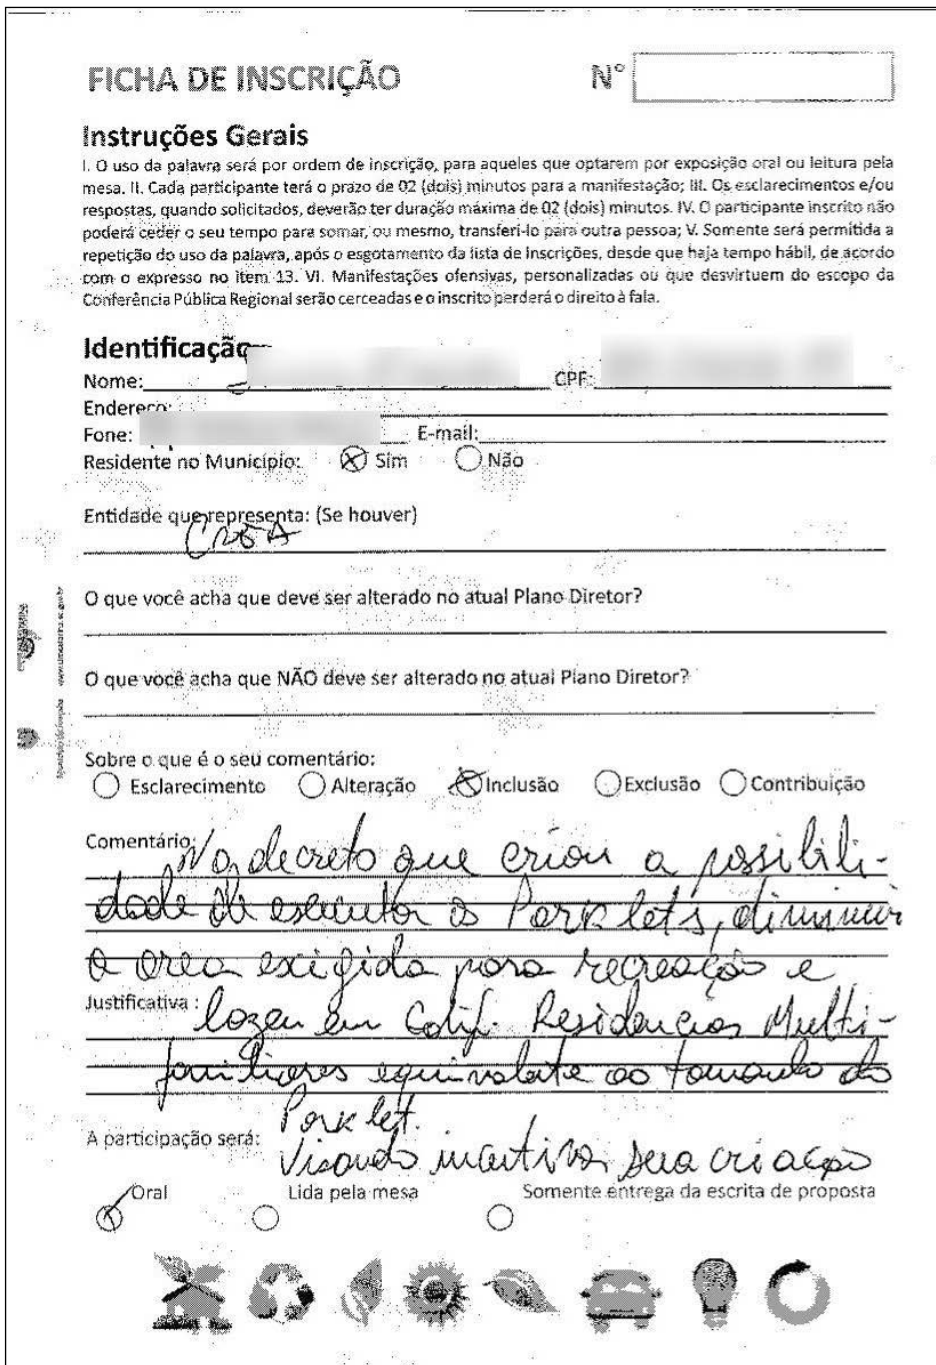 FICHA DE INSCRIÇÃO
N°
Instruções Gerais
I. O uso da palavra será por ordem de inscrição, para aqueles que optarem por exposição oral ou leitura pela
mesa. II. Cada participante terá o prazo de 02 (dois) minutos para a manifestação; III. Os esclarecimentos e/ou
respostas, quando solicitados, deverão ter duração máxima de 02 (dois) minutos. IV. O participante inscrito não
poderá ceder o seu tempo para somar, ou mesmo, transferi-lo para outra pessoa; V. Somente será permitida a
repetição do uso da palavra, após o esgotamento da lista de inscrições, desde que haja tempo hábil, de acordo
com o expresso no item 13. VI. Manifestações ofensivas, personalizadas ou que desvirtuem do escopo da
Conferência Pública Regional serão cerceadas e o inscrito perderá o direito à fala.
Identificação
Nome: CPF:
Endereço:
Fone: E-mail:
Residente no Município: Sim Não
Entidade que representa: (Se houver)
CREA
O que você acha que deve ser alterado no atual Plano Diretor?
O que você acha que NÃO deve ser alterado no atual Plano Diretor?
Sobre o que é o seu comentário:
Esclarecimento Alteração Inclusão Exclusão Contribuição
Comentário: No decreto que criou a possibili-
dade de executar os Parklets, diminuir
a area exigida para recreação e
Justificativa: lazer em Edif. Residencias Multi-
familiares equivalate ao tamanho do
Parklet.
A participação será: Visando incentivar sua criação
Oral Lida pela mesa Somente entrega da escrita de proposta